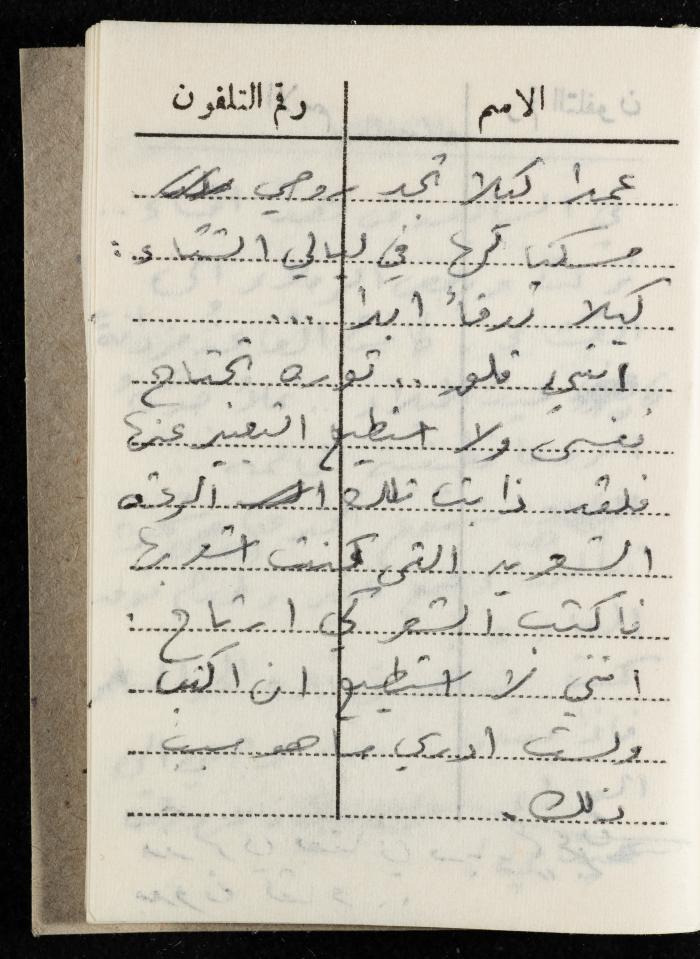 الاسم رقم التلفون
عمدا كيلا تجد روحي
مسكبا قربها في ليالي الشتاء :
كيلا تدفأ ابدا ...
انني قلق .. ثوره تجتاح
نفسي ولا استطيع التعبير عنها
فلقد ذابت تلك الرعشه
الشعريه التي كنت اشعر بها
فاكتب الشعر كي ارتاح .
انني لا استطيع ان اكتب
ولست ادري ما هو سبب
ذلك .